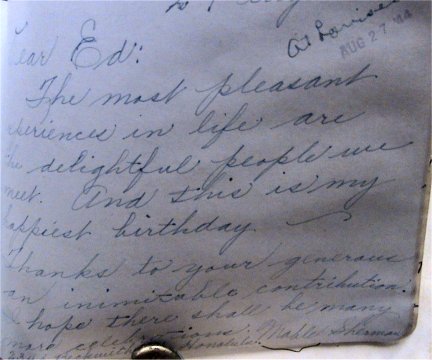 At Louise's
AUG 27 '44
Dear Ed:
The most pleasant
experiences in life are
the delightful people we
meet. And this is my
happiest birthday.
Thanks to your generous
an inimitable contribution.
I hope there shall be many
more celebrations. Mable Sherman
Honolulu